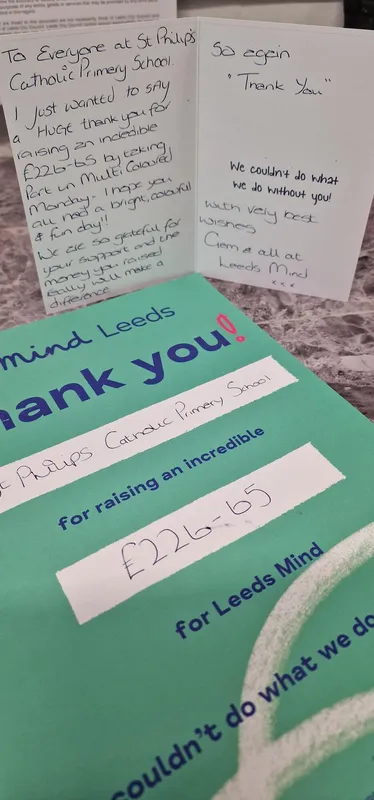 To Everyone at St Philip's
Catholic Primary School.
I just wanted to say
a HUGE thank you for
raising an incredible
£226-65 by taking
Part in Multi Coloured
Monday. I hope you
all had a bright, colourful
& fun day!!
We are so grateful for
your support and the
money you raised
really will make a
difference
So again
"Thank You"
We couldn't do what
we do without you!
With very best
wishes
Gem & all at
Leeds Mind
xxx
mind Leeds
hank you!
St Philips Catholic Primary School
for raising an incredible
£226-65
for Leeds Mind
couldn't do what we do